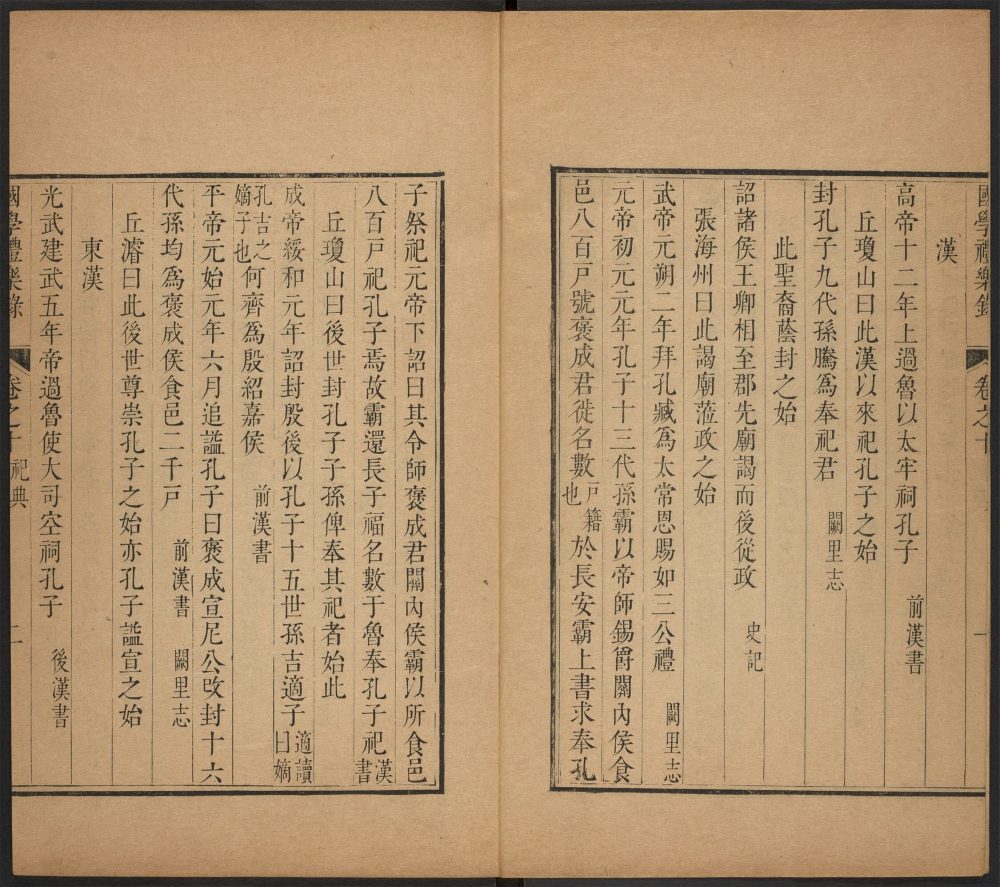 國學禮樂錄 卷之十 一
漢
高帝十二年上過魯以太牢祠孔子 前漢書
丘瓊山曰此漢以來祀孔子之始
封孔子九代孫騰爲奉祀君 闕里志
此聖裔蔭封之始
詔諸侯王卿相至郡先廟謁而後從政 史記
張海州曰此謁廟蒞政之始
武帝元朔二年拜孔臧爲太常恩賜如三公禮 闕里志
元帝初元元年孔子十三代孫霸以帝師錫爵關內侯食
邑八百戶號褒成君徙名數戶籍也於長安霸上書求奉孔
子祭祀元帝下詔曰其令師褒成君關內侯霸以所食邑
八百戶祀孔子焉故霸還長子福名數于魯奉孔子祀漢書
丘瓊山曰後世封孔子子孫俾奉其祀者始此
成帝綏和元年詔封殷後以孔子十五世孫吉適子適讀曰嫡
孔吉之嫡子也何齊爲殷紹嘉侯 前漢書
平帝元始元年六月追諡孔子曰褒成宣尼公攺封十六
代孫均爲褒成侯食邑二千戶 前漢書 闕里志
丘濬曰此後世尊崇孔子之始亦孔子諡宣之始
東漢
光武建武五年帝過魯使大司空祠孔子 後漢書
國學禮樂錄 卷之十 祀典 二